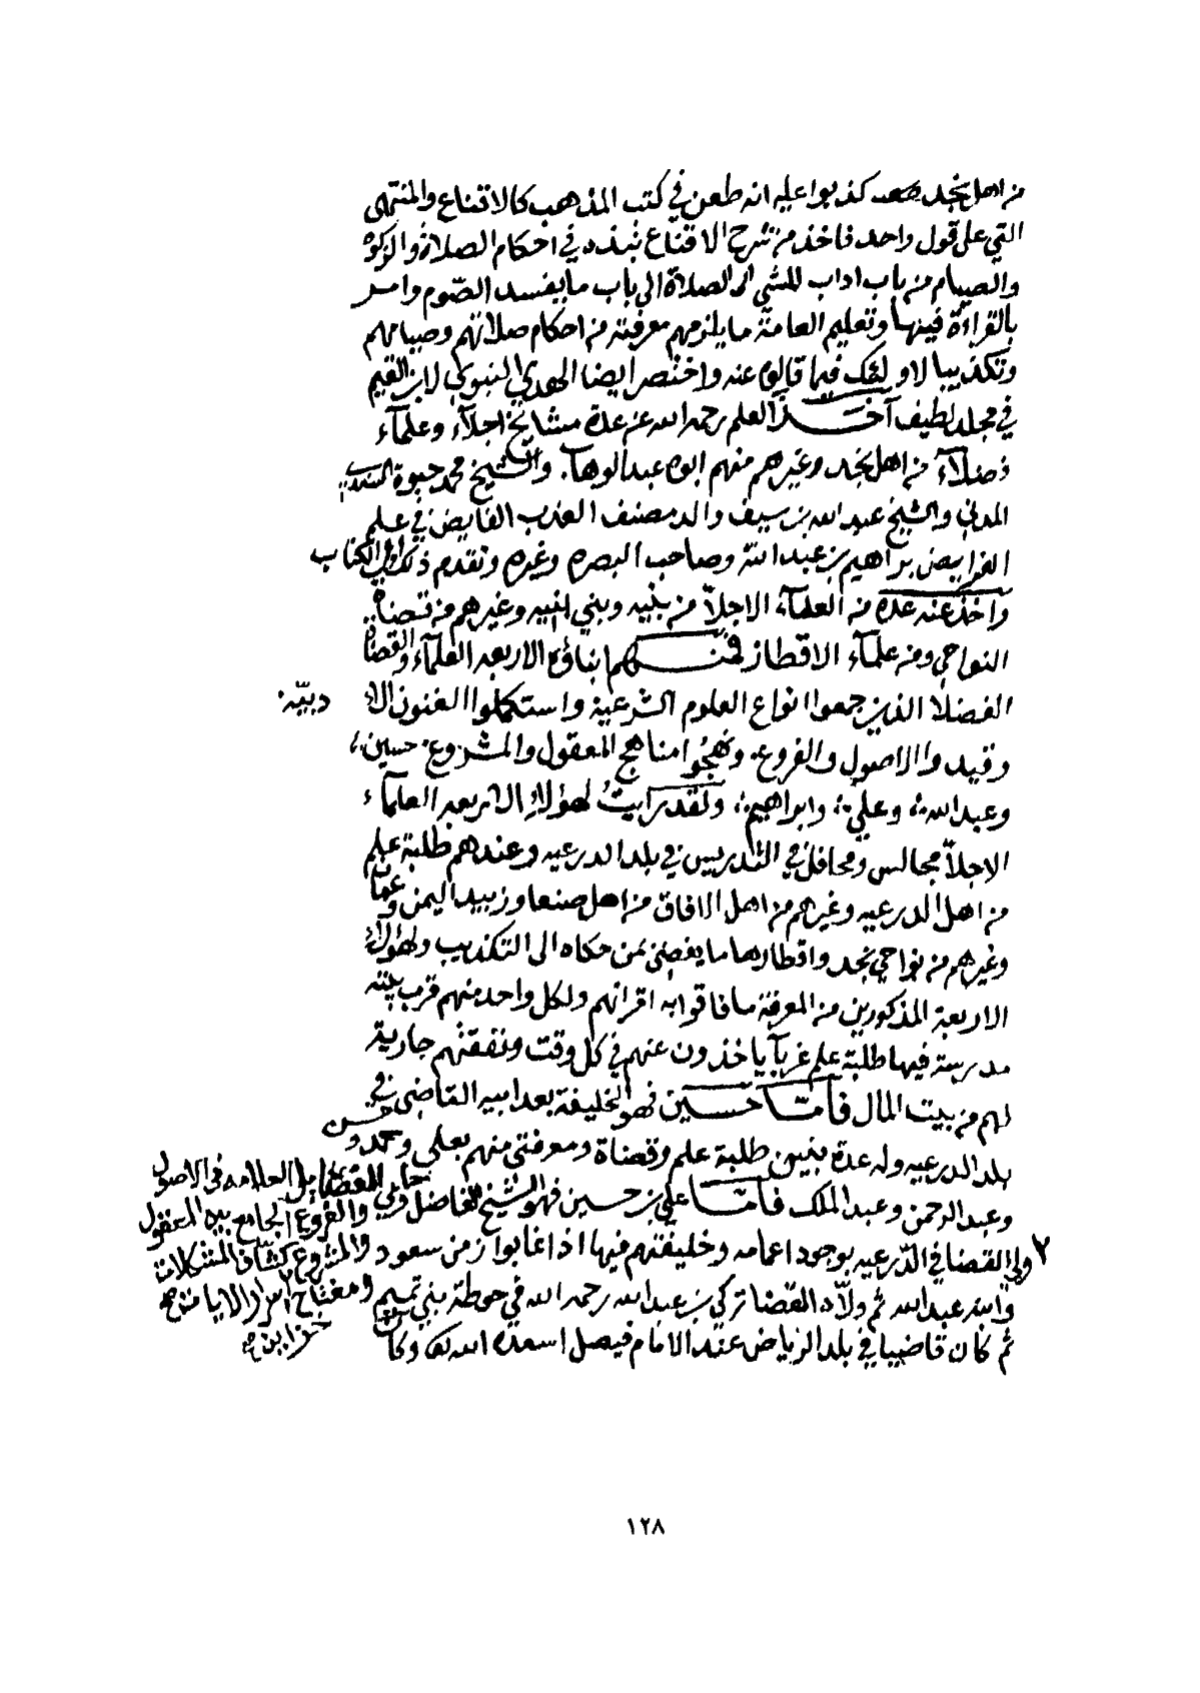 من اهل نجد كذبوا عليه انه طعن في كتب المذهب كالاقناع والمنتهى
التي على قول واحد فاخذ من شرح الاقناع نبذه في احكام الصلاة والزكوة
والصيام من باب اداب المشي الى الصلاة الى باب ما يفسد الصّوم وامر
بالقراءة فيها وتعليم العامة ما يلزمهم معرفته من احكام صلاتهم وصيامهم
وتكذيبا لاولئك فيما قالوه عنه واختصر ايضا الهدي النبوي لابن القيم
في مجلد لطيف آخذ العلم رحمه الله عن عدة مشايخ اجلآء وعلمآء
فضلآء من اهل نجد وغيرهم منهم ابوه عبد الوهاب والشيخ محمد حيوة السندي
المدني والشيخ عبد الله بن سيف والد مصنف العذب الفايض في علم
الفرايض براهيم بن عبد الله وصاحب البصره وغيره وتقدم ذلك اول الكتاب
واخذ عنه عدة من العلمآء الاجلاّ من بنيه وبني بنيه وغيرهم من قضاة
النواحي ومن علمآء الاقطار فمنهم ابناؤه الاربعه العلمآء والقضاة
الفضلا الذين جمعوا انواع العلوم الشرعية واستكملوا الفنون الا دبيّه
وقيدوا الاصول والفروع ونهجوا مناهج المعقول والمشروع حسين
وعبد الله وعلي وابراهيم ولقد رايت لهؤلاء الاربعه العلمآء
الاجلاّ مجالس ومحافل في التدريس في بلد الدرعيه وعندهم طلبة علم
من اهل الدرعيه وغيرهم من اهل الافاق من اهل صنعا وزبيد اليمن وعمان
وغيرهم من نواحي نجد واقطارها ما يفضي لمن حكاه الى التكذيب ولهؤلاء
الاربعة المذكورين من المعرفة ما فاقوا به اقرانهم ولكل واحد منهم قرب بيته
مدرسة فيها طلبة علم غربآ ياخذون عنهم في كل وقت ونفقتهم جارية
لهم من بيت المال فأمّا حسين فهو الخليفة بعد ابيه القاضي في
بلد الدرعيه وله عدة بنين طلبة علم وقضاة ومعرفتي منهم بعلي وحمد وحسن
وعبد الرحمن وعبد الملك فأمّا علي بن حسين فهو الشيخ الفاضل
ولي القضا في الدّرعيه بوجود اعمامه وخليفتهم فيها اذا غابوا زمن سعود
وابنه عبد الله ثم ولاّه القضا تركي بن عبد الله رحمه الله في حوطة بني تميم
ثم كان قاضيا في بلد الرياض عند الامام فيصل اسعده الله تعالى وكان
حاوي الفضايل العلامه في الاصول
والفروع الجامع بين المعقول
والمشروع كشّاف المشكلات
ومفتاح خزاين اسرار الايات
١٢٨